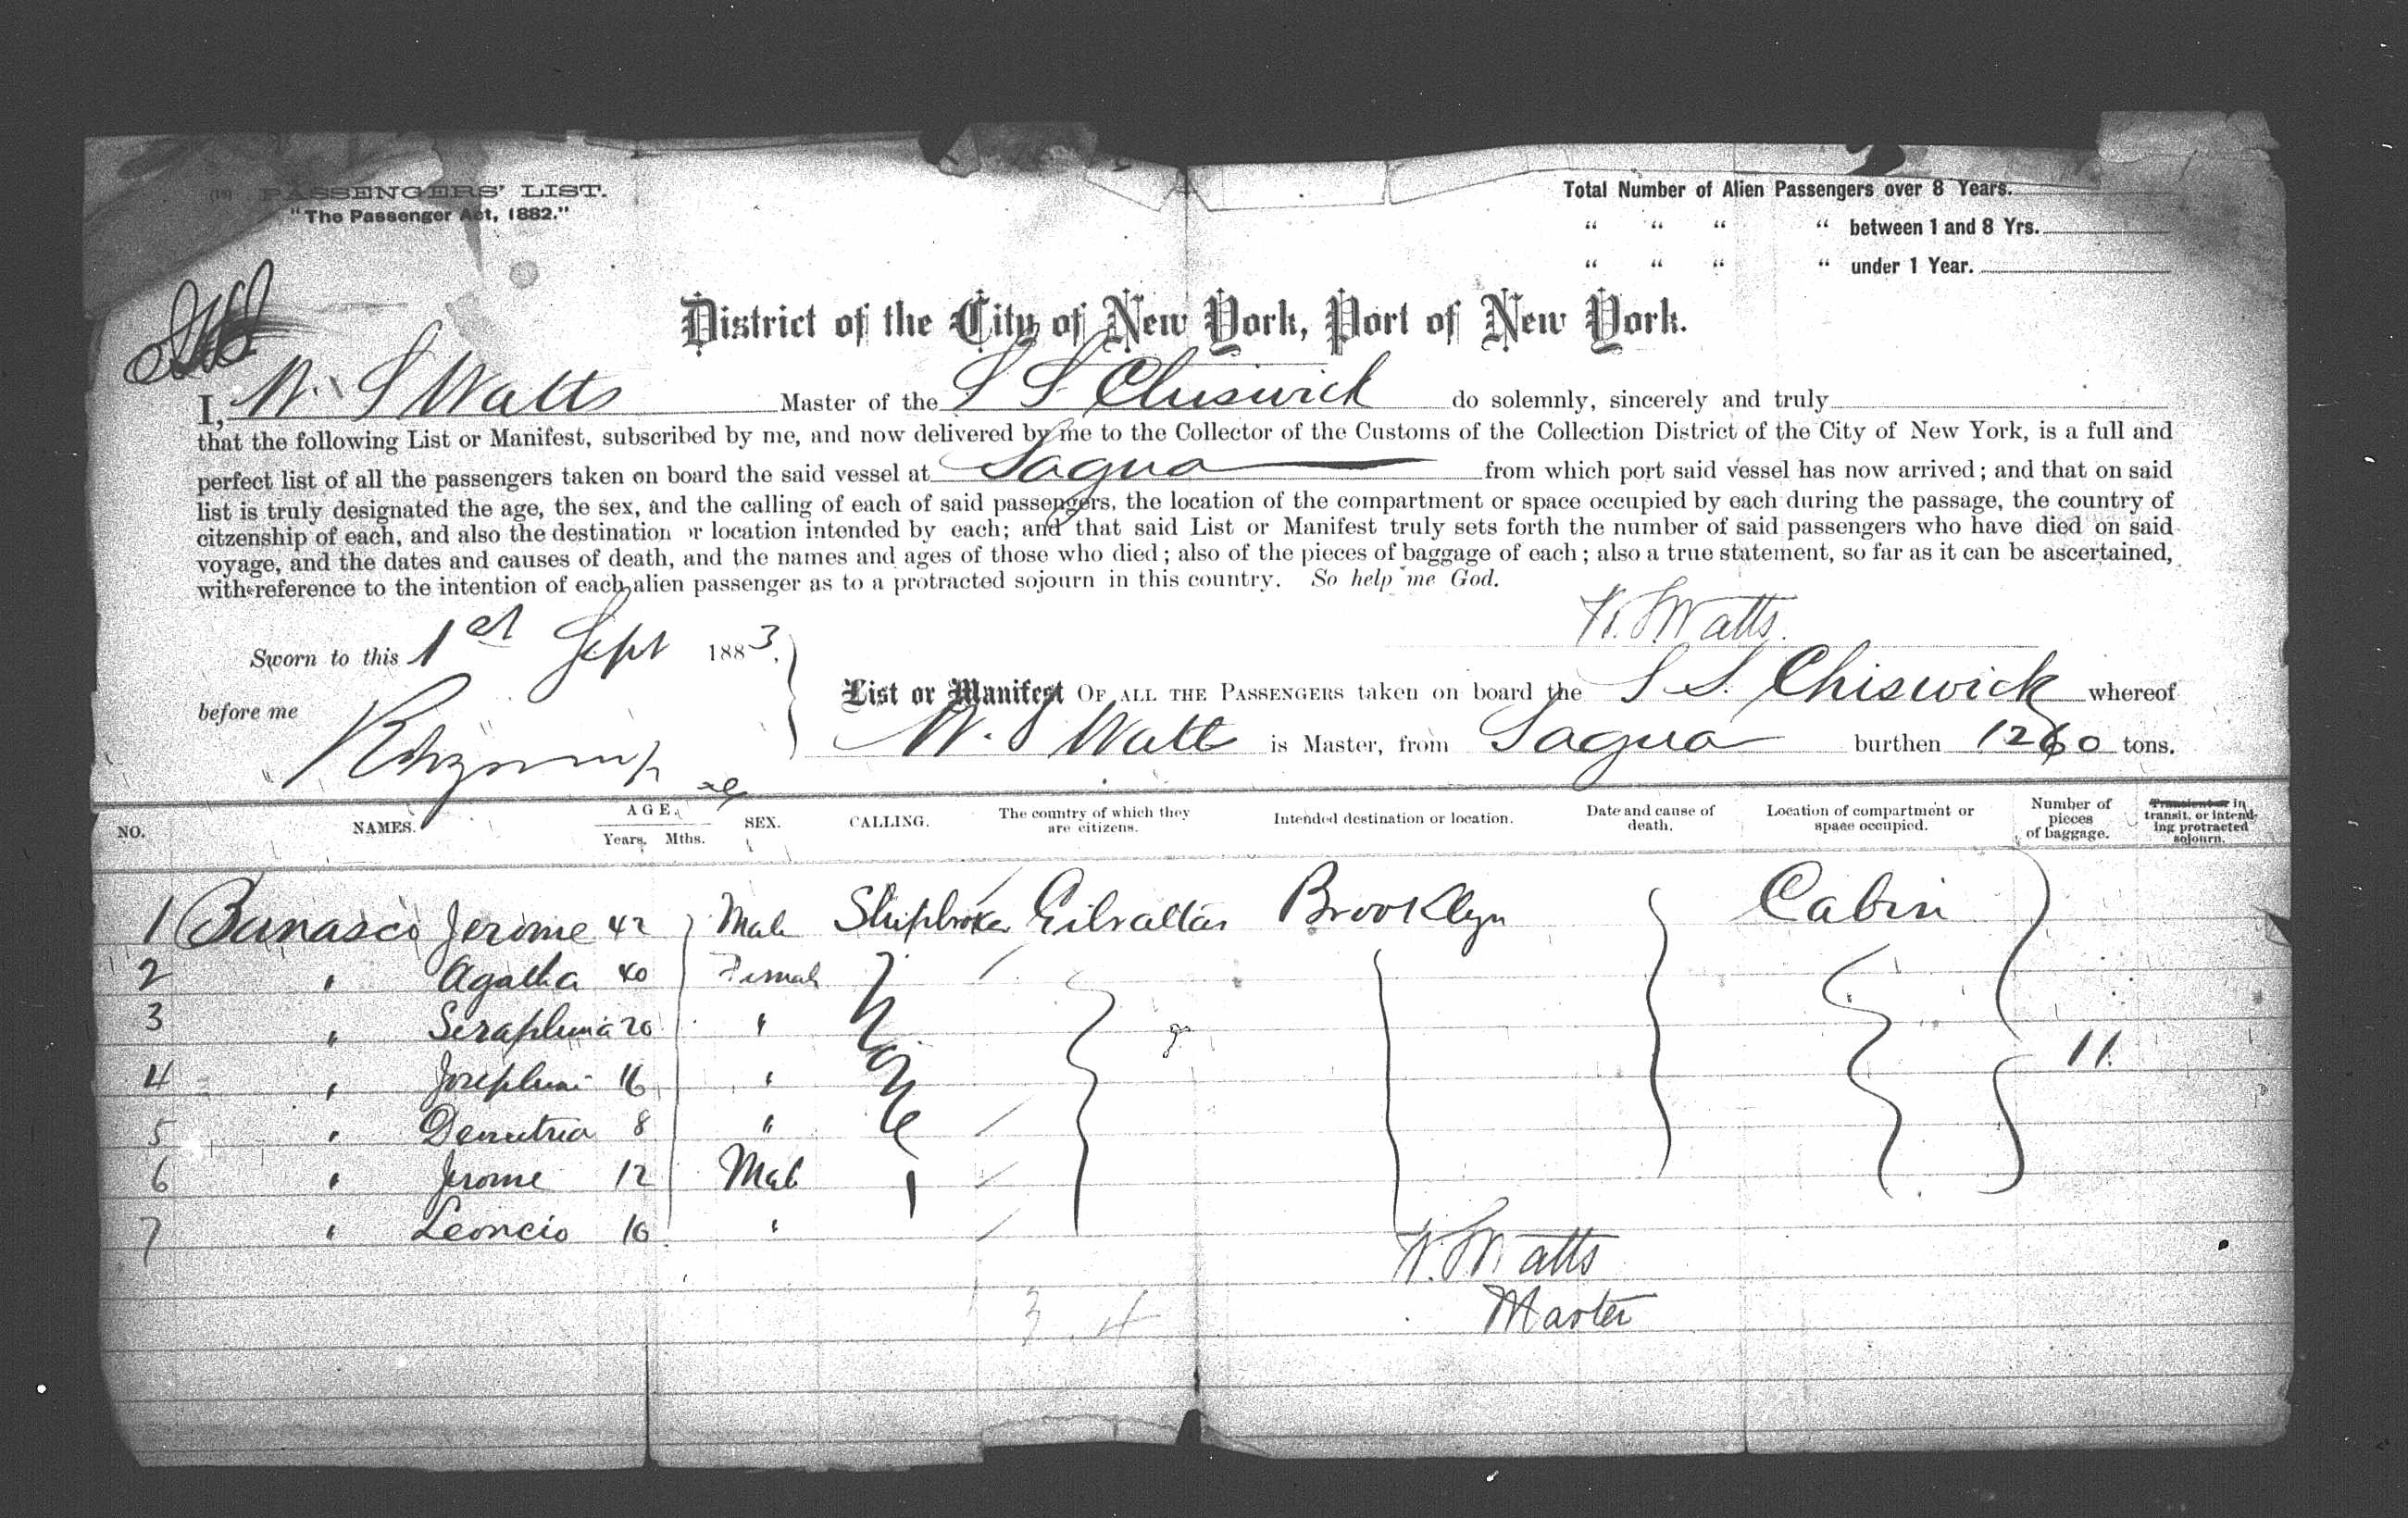 (19) PASSENGERS' LIST.
"The Passenger Act, 1882."
Total Number of Alien Passengers over 8 Years.
“ “ “ “ between 1 and 8 Yrs.
“ “ “ “ under 1 Year.
District of the City of New York, Port of New York.
I, W. S Watts Master of the S S Chiswick do solemnly, sincerely and truly
that the following List or Manifest, subscribed by me, and now delivered by me to the Collector of the Customs of the Collection District of the City of New York, is a full and
perfect list of all the passengers taken on board the said vessel at Sagua from which port said vessel has now arrived; and that on said
list is truly designated the age, the sex, and the calling of each of said passengers, the location of the compartment or space occupied by each during the passage, the country of
citzenship of each, and also the destination or location intended by each; and that said List or Manifest truly sets forth the number of said passengers who have died on said
voyage, and the dates and causes of death, and the names and ages of those who died; also of the pieces of baggage of each; also a true statement, so far as it can be ascertained,
with reference to the intention of each alien passenger as to a protracted sojourn in this country. So help me God.
W. S Watts.
Sworn to this 1st Sept 1883.
before me
List or Manifest OF ALL THE PASSENGERS taken on board the S S. Chiswick whereof
W. S Watt is Master, from Sagua burthen 1260 tons.
NO. NAMES. AGE. Years. Mths. SEX. CALLING. The country of which they are citizens. Intended destination or location. Date and cause of death. Location of compartment or space occupied. Number of pieces of baggage. Transient or in transit, or intending protracted sojourn.
1 Banasco Jerome 42 Male Shipbroker Gibraltar Brooklyn Cabin
2 " Agatha 40 Female
3 " Seraphina 20 "
4 " Josephine 16 " 11.
5 " Demetria 8 "
6 " Jerome 12 Male
7 " Leoncio 10 "
W. S Watts
Master
3 4